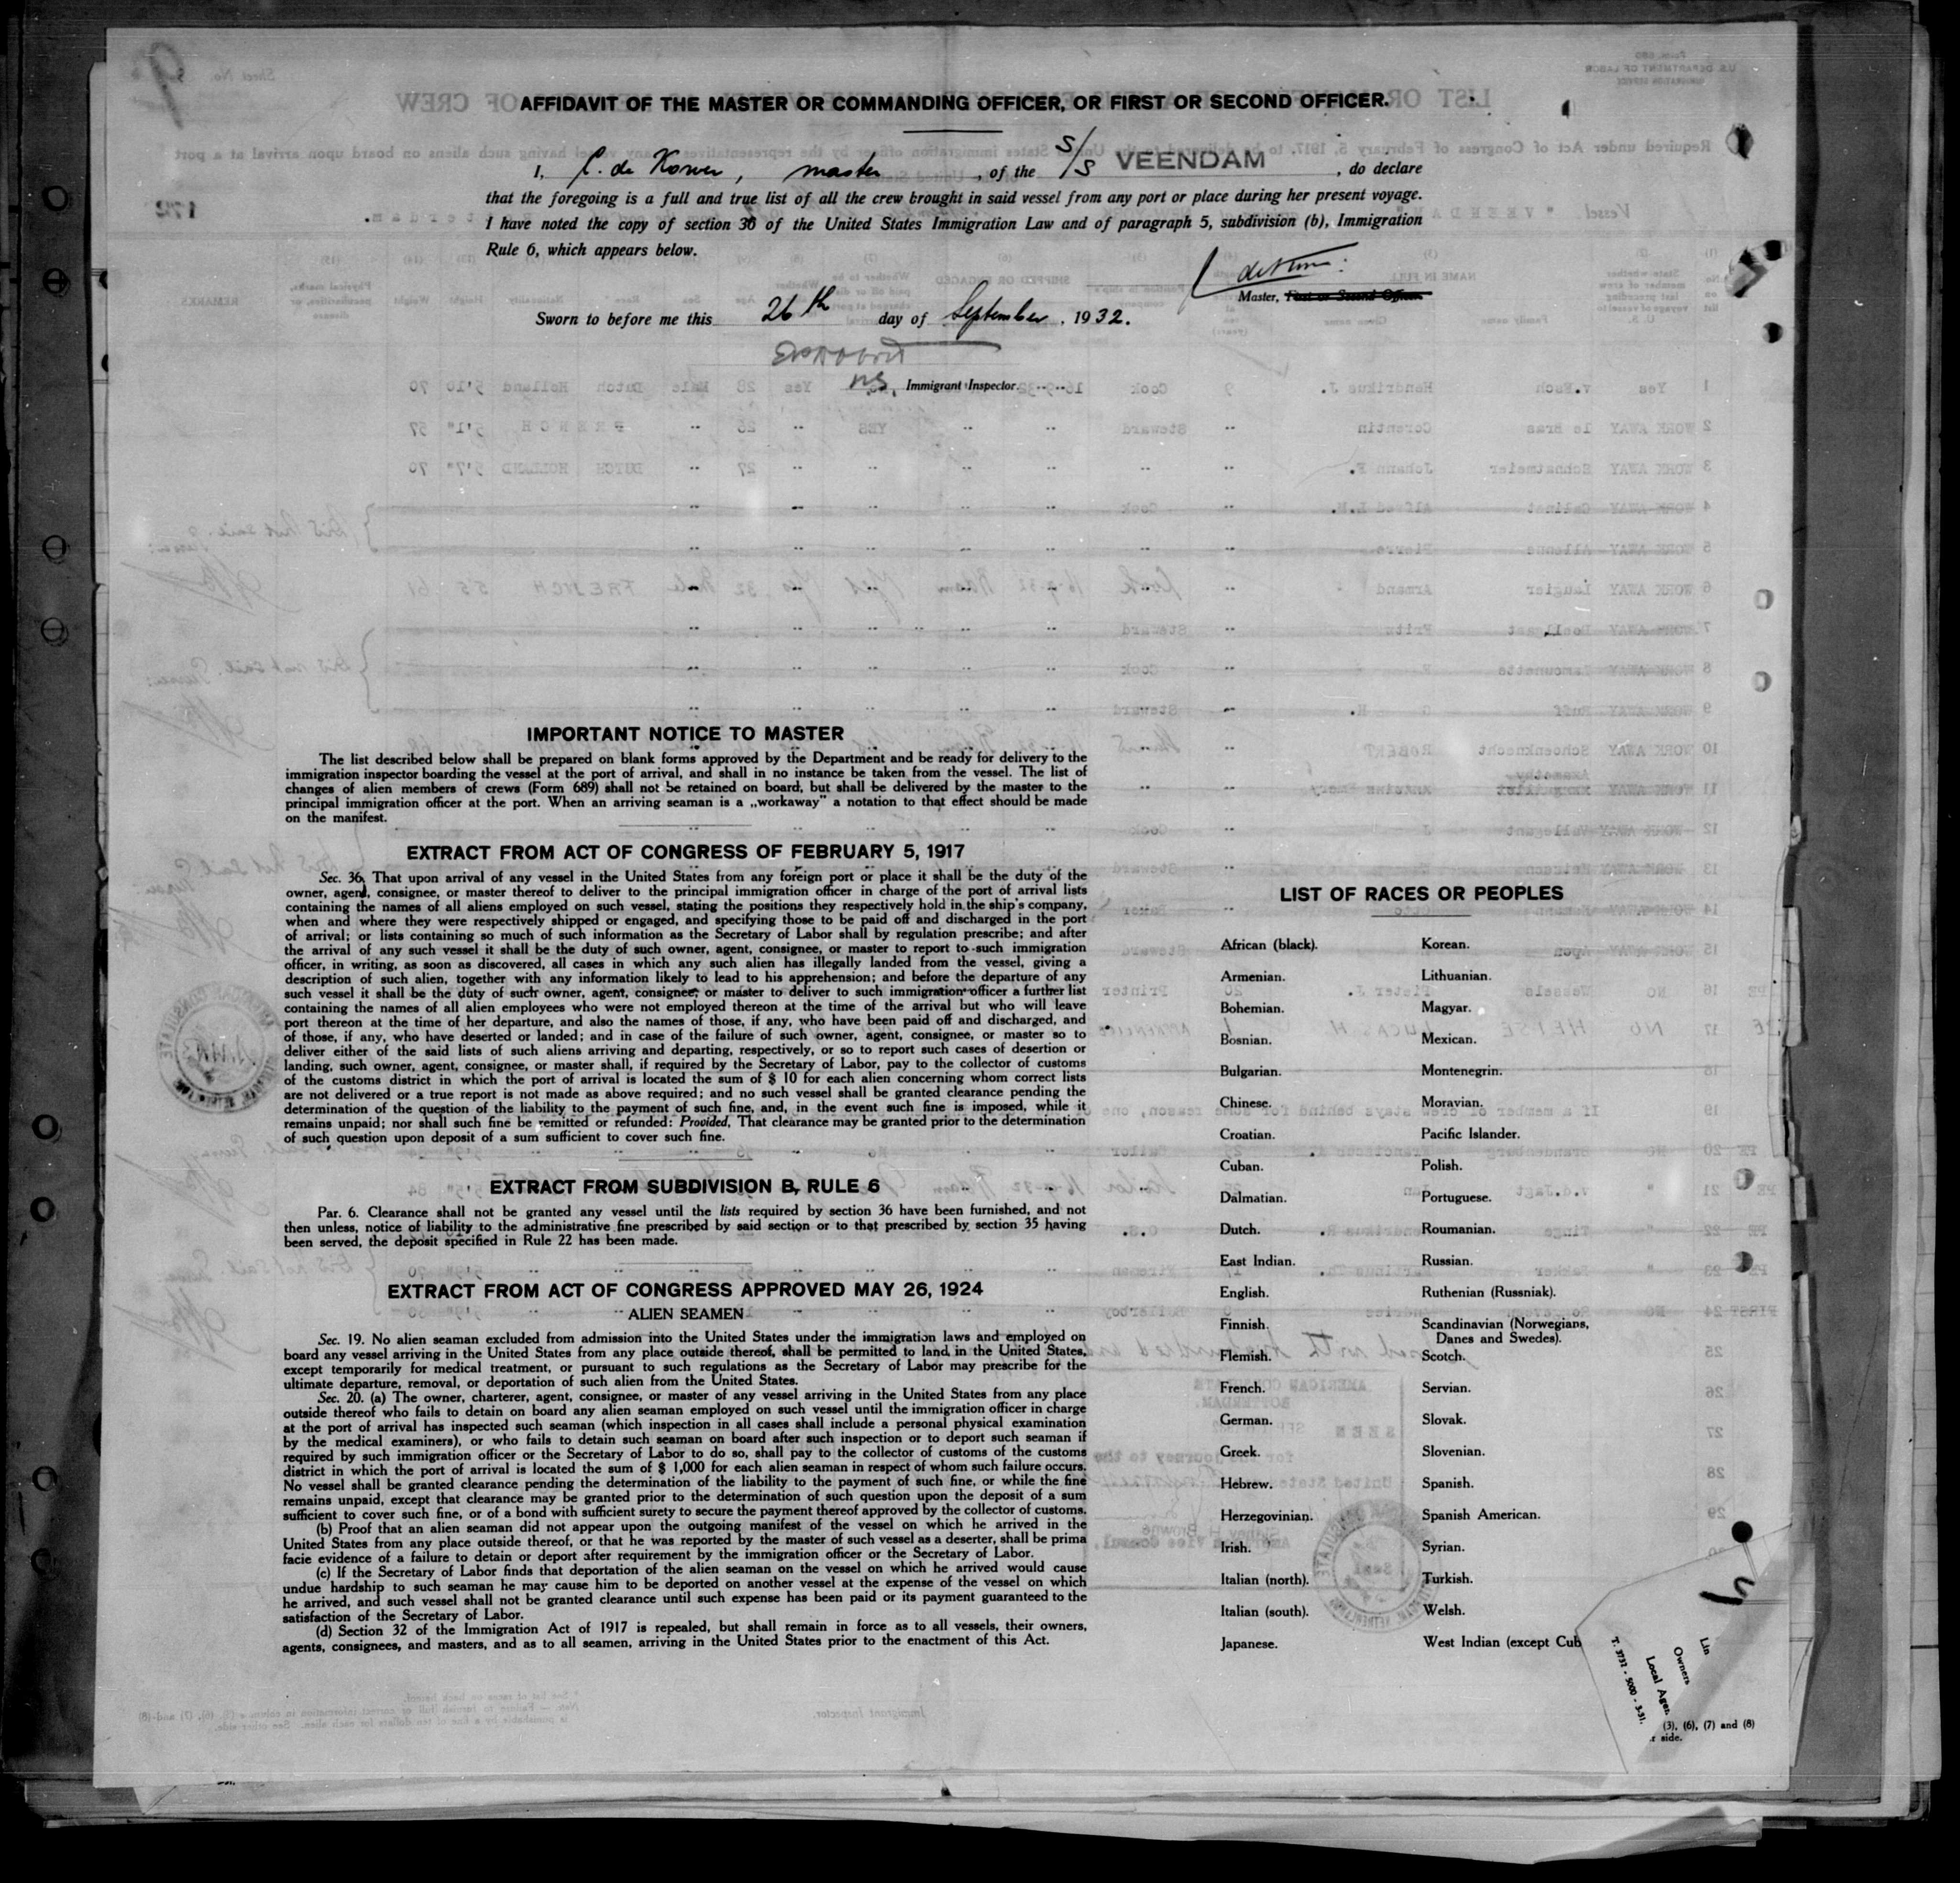 AFFIDAVIT OF THE MASTER OR COMMANDING OFFICER, OR FIRST OR SECOND OFFICER.
I, master, of the S/S VEENDAM, do declare
that the foregoing is a full and true list of all the crew brought in said vessel from any port or place during her present voyage.
I have noted the copy of section 36 of the United States Immigration Law and of paragraph 5, subdivision (b), Immigration
Rule 6, which appears below.
Master, First or Second Officer.
Sworn to before me this 26th day of September, 1932.
Immigrant Inspector.
IMPORTANT NOTICE TO MASTER
The list described below shall be prepared on blank forms approved by the Department and be ready for delivery to the
immigration inspector boarding the vessel at the port of arrival, and shall in no instance be taken from the vessel. The list of
changes of alien members of crews (Form 689) shall not be retained on board, but shall be delivered by the master to the
principal immigration officer at the port. When an arriving seaman is a „workaway” a notation to that effect should be made
on the manifest.
EXTRACT FROM ACT OF CONGRESS OF FEBRUARY 5, 1917
Sec. 36. That upon arrival of any vessel in the United States from any foreign port or place it shall be the duty of the
owner, agent, consignee, or master thereof to deliver to the principal immigration officer in charge of the port of arrival lists
containing the names of all aliens employed on such vessel, stating the positions they respectively hold in the ship's company,
when and where they were respectively shipped or engaged, and specifying those to be paid off and discharged in the port
of arrival; or lists containing so much of such information as the Secretary of Labor shall by regulation prescribe; and after
the arrival of any such vessel it shall be the duty of such owner, agent, consignee, or master to report to such immigration
officer, in writing, as soon as discovered, all cases in which any such alien has illegally landed from the vessel, giving a
description of such alien, together with any information likely to lead to his apprehension; and before the departure of any
such vessel it shall be the duty of such owner, agent, consignee, or master to deliver to such immigration officer a further list
containing the names of all alien employees who were not employed thereon at the time of the arrival but who will leave
port thereon at the time of her departure, and also the names of those, if any, who have been paid off and discharged, and
of those, if any, who have deserted or landed; and in case of the failure of such owner, agent, consignee, or master so to
deliver either of the said lists of such aliens arriving and departing, respectively, or so to report such cases of desertion or
landing, such owner, agent, consignee, or master shall, if required by the Secretary of Labor, pay to the collector of customs
of the customs district in which the port of arrival is located the sum of $ 10 for each alien concerning whom correct lists
are not delivered or a true report is not made as above required; and no such vessel shall be granted clearance pending the
determination of the question of the liability to the payment of such fine, and, in the event such fine is imposed, while it
remains unpaid; nor shall such fine be remitted or refunded: Provided, That clearance may be granted prior to the determination
of such question upon deposit of a sum sufficient to cover such fine.
EXTRACT FROM SUBDIVISION B, RULE 6
Par. 6. Clearance shall not be granted any vessel until the lists required by section 36 have been furnished, and not
then unless, notice of liability to the administrative fine prescribed by said section or to that prescribed by section 35 having
been served, the deposit specified in Rule 22 has been made.
EXTRACT FROM ACT OF CONGRESS APPROVED MAY 26, 1924
ALIEN SEAMEN
Sec. 19. No alien seaman excluded from admission into the United States under the immigration laws and employed on
board any vessel arriving in the United States from any place outside thereof, shall be permitted to land in the United States,
except temporarily for medical treatment, or pursuant to such regulations as the Secretary of Labor may prescribe for the
ultimate departure, removal, or deportation of such alien from the United States.
Sec. 20. (a) The owner, charterer, agent, consignee, or master of any vessel arriving in the United States from any place
outside thereof who fails to detain on board any alien seaman employed on such vessel until the immigration officer in charge
at the port of arrival has inspected such seaman (which inspection in all cases shall include a personal physical examination
by the medical examiners), or who fails to detain such seaman on board after such inspection or to deport such seaman if
required by such immigration officer or the Secretary of Labor to do so, shall pay to the collector of customs of the customs
district in which the port of arrival is located the sum of $ 1,000 for each alien seaman in respect of whom such failure occurs.
No vessel shall be granted clearance pending the determination of the liability to the payment of such fine, or while the fine
remains unpaid, except that clearance may be granted prior to the determination of such question upon the deposit of a sum
sufficient to cover such fine, or of a bond with sufficient surety to secure the payment thereof approved by the collector of customs.
(b) Proof that an alien seaman did not appear upon the outgoing manifest of the vessel on which he arrived in the
United States from any place outside thereof, or that he was reported by the master of such vessel as a deserter, shall be prima
facie evidence of a failure to detain or deport after requirement by the immigration officer or the Secretary of Labor.
(c) If the Secretary of Labor finds that deportation of the alien seaman on the vessel on which he arrived would cause
undue hardship to such seaman he may cause him to be deported on another vessel at the expense of the vessel on which
he arrived, and such vessel shall not be granted clearance until such expense has been paid or its payment guaranteed to the
satisfaction of the Secretary of Labor.
(d) Section 32 of the Immigration Act of 1917 is repealed, but shall remain in force as to all vessels, their owners,
agents, consignees, and masters, and as to all seamen, arriving in the United States prior to the enactment of this Act.
LIST OF RACES OR PEOPLES
African (black).
Armenian.
Bohemian.
Bosnian.
Bulgarian.
Chinese.
Croatian.
Cuban.
Dalmatian.
Dutch.
East Indian.
English.
Finnish.
Flemish.
French.
German.
Greek.
Hebrew.
Herzegovinian.
Irish.
Italian (north).
Italian (south).
Japanese.
Korean.
Lithuanian.
Magyar.
Mexican.
Montenegrin.
Moravian.
Pacific Islander.
Polish.
Portuguese.
Roumanian.
Russian.
Ruthenian (Russniak).
Scandinavian (Norwegians,
Danes and Swedes).
Scotch.
Servian.
Slovak.
Slovenian.
Spanish.
Spanish American.
Syrian.
Turkish.
Welsh.
West Indian (except Cub
Lin
Owners
Local Agen
T. 3732 - 5000 - 3-31.
(3), (6), (7) and (8)
r side.